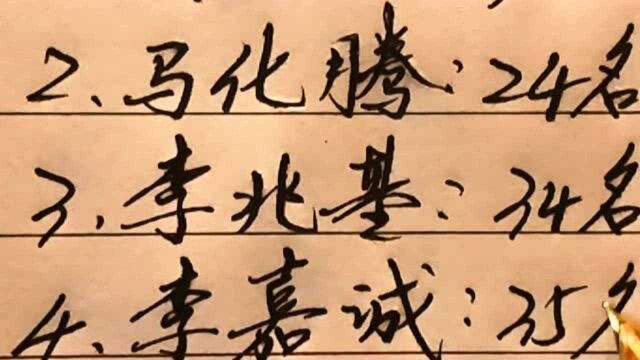 2、马化腾：24名
3、李兆基：34名
4、李嘉诚：35名